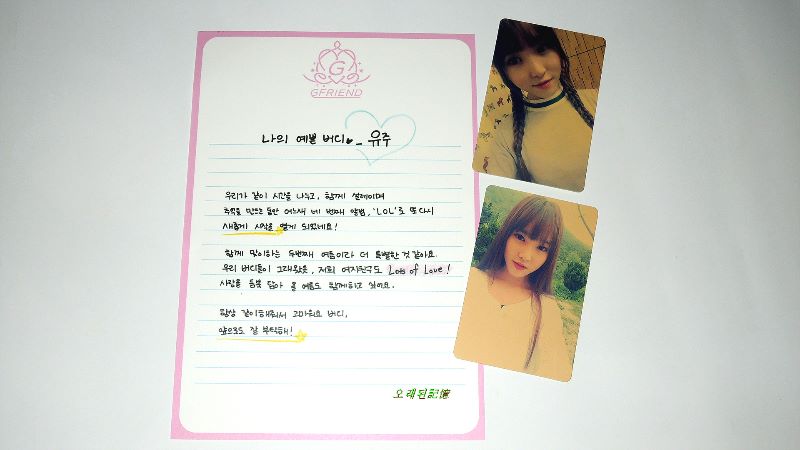 G
GFRIEND
나의 예쁜 버디♥_ 유주
우리가 같이 시간을 나누고, 함께 설레이며
추억을 만드는 동안 어느새 네 번째 앨범, 'LOL'로 또 다시
새롭게 시작을 열게 되었네요!
함께 맞이하는 두번째 여름이라 더 특별한 것 같아요.
우리 버디들이 그래왔듯, 저희 여자친구도 Lots of Love!
사랑을 듬뿍 담아 올 여름도 함께하고 싶어요.
항상 같이해줘서 고마워요 버디,
앞으로도 잘 부탁해!
오래된記憶